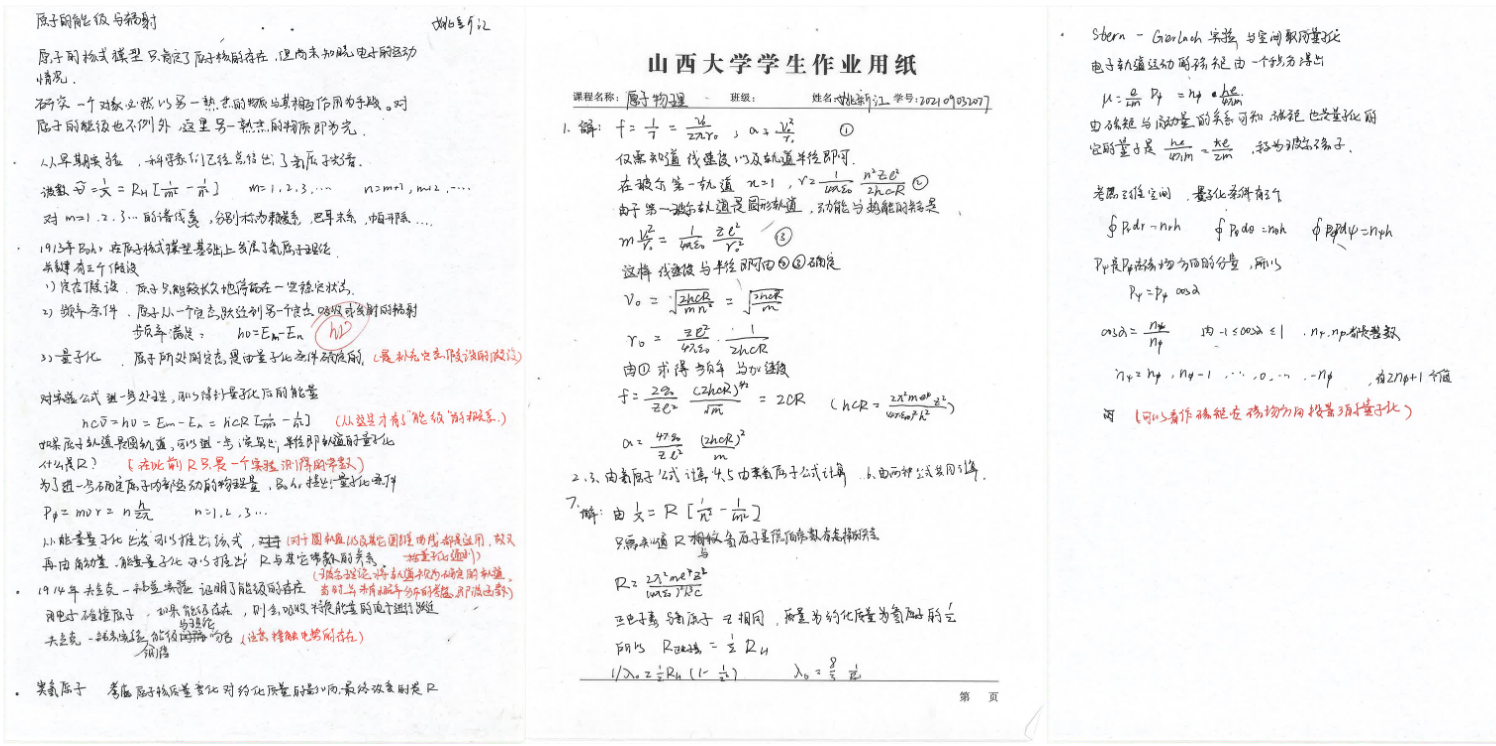 原子的能级与辐射 姚新江
原子的核式模型只肯定了原子核的存在,但尚未知晓电子的运动
情况.
研究一个对象必然以另一熟悉的物质与其相互作用为手段。对
原子的能级也不例外 这里另一熟悉的物质即为光.
从早期实验,科学家们已经总结出了氢原子光谱.
波数 ṽ = 1/λ = R_H [1/m² - 1/n²] m=1,2,3,… n=m+1, m+2, …
对 m=1.2.3…的谱线系,分别称为赖曼系,巴耳末系,帕邢系….
1913年Bohr在原子核式模型基础上发展了氢原子理论.
关键有三个假设
1) 定态假设. 原子只能较长久地停留在一定稳定状态.
2) 频率条件. 原子从一个定态跃迁到另一个定态吸收或发射的辐射
频率满足: hν=Em-En hν
3) 量子化. 原子所处的定态是由量子化条件确定的.(是补充定态假设的假设)
对实验公式进一步处理,可以得到量子化后的能量
hcṽ = hν = Em-En = hcR [1/m² - 1/n²] (从这里才有了"能级"的概念.)
如果原子轨道是圆轨道,可以进一步演算出,半径即轨道的量子化
什么是R? (在此前R只是一个实验测得的常数)
为了进一步确定原子内部运动的物理量,Bohr提出量子化条件
Pφ = mvr = n h/2π n=1,2,3…
从能量量子化出发可以推出该式,(对于圆轨道以及其它圆锥曲线都是适用,故又
再由角动量.能量量子化可以推出 R与其它常数的关系. 称量子化通则)
(玻尔理论将轨道视为确定的轨道,
1914年夫兰克-赫兹实验 证明了能级的存在 当时尚未有概率分布的考虑,即波函数)
用电子碰撞原子,如果能级存在,则会吸收特定能量的电子进行跃迁
夫兰克-赫兹实验 能级 与理论 吻合 (注意接触电势的存在)
类氢原子 考虑原子核质量变化对约化质量的影响.最终改变的是R
山西大学学生作业用纸
课程名称: 原子物理 班级: 姓名:姚新江 学号:202109032077
1. 解: f = 1/T = v₀/2πr₀ , a = v₀²/r₀ ①
仅需知道线速度以及轨道半径即可.
在玻尔第一轨道 n=1, r = 1/4πε₀ n²Ze²/2hcR ②
由于第一玻尔轨道是圆形轨道,动能与势能的关系是
m v₀²/r₀ = 1/4πε₀ Ze²/r₀² ③
这样 线速度与半径即可由②③确定
v₀ = √(2hcR/mn²) = √(2hcR/m)
r₀ = Ze²/4πε₀ · 1/2hcR
由①求得频率与加速度
f = 2ε₀/Ze² (2hcR)^(3/2)/√m = 2CR (hCR = 2π²me⁴z²/(4πε₀)²h²)
a = 4πε₀/Ze² (2hcR)²/m
2.3.由氢原子公式计算 4.5由类氢原子公式计算 6.由两种公式共同计算.
7. 解: 由 1/λ = R [1/n² - 1/m²]
只需知道R与氢原子里德伯常数有怎样的关系
R = 2π²me⁴z²/(4πε₀)²h³c
正电子素与氢原子 z相同,质量为约化质量为氢原子的1/2
所以 R正电子素 = 1/2 R_H
1/λ₀ = 1/2 R_H (1 - 1/2²) λ₀ = 8/3 1/R
第 页
Stern - Gerlach 实验与空间取向量子化
电子轨道运动的磁矩由一个积分得出
μ = e/2m Pφ = nφ he/4πm
由磁矩与角动量的关系可知 磁矩也是量子化的
它的量子是 he/4πm = ħe/2m,称为玻尔磁子.
考虑三维空间. 量子化条件有三个
∮Prdr = nrh ∮Pθdθ = nθh ∮Pψdψ = nψh
Pψ是Pφ在磁场方向的分量,所以
Pψ = Pφ cosα
cosα = nψ/nφ 由 -1≤cosα≤1 . nψ.nφ都是整数
nψ = nφ, nφ-1 …, 0, …, -nφ , 有2nφ+1个值
(可以看作磁矩在磁场方向投影了的量子化)